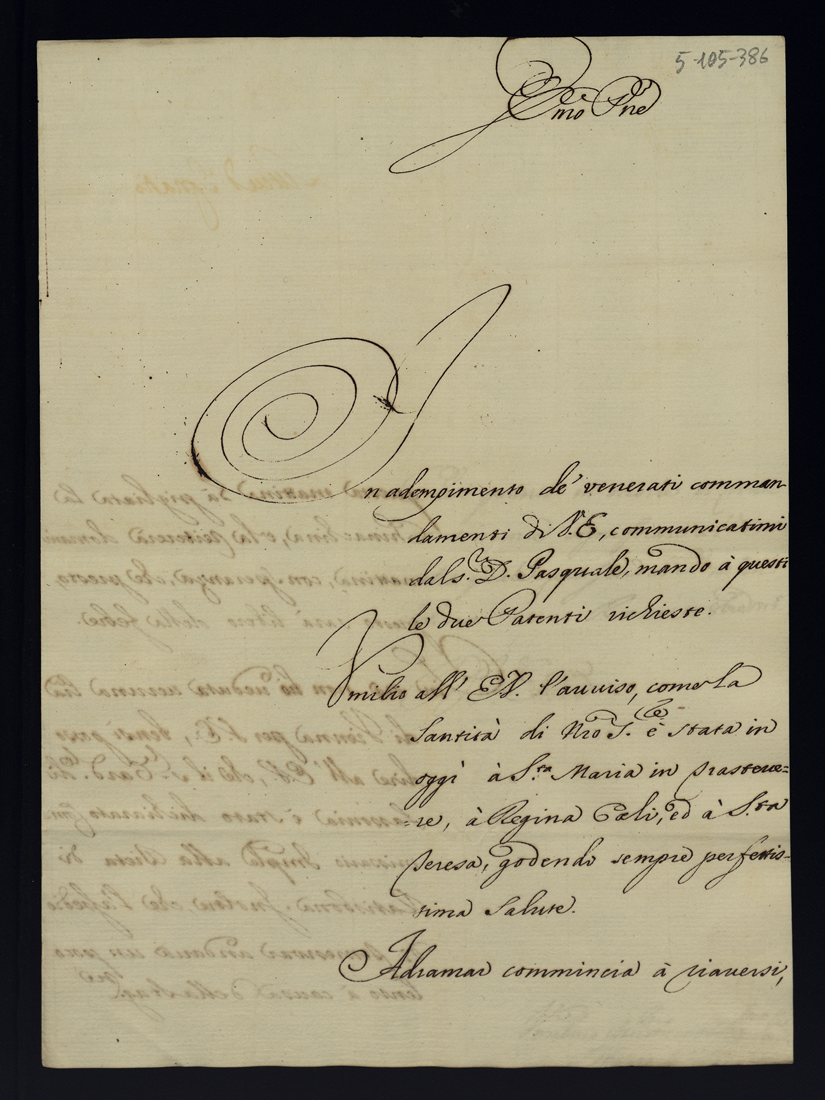 5-105-386
Emo Pne
In adempimento de' venerati comman-
damenti di V.E., communicatimi
dal S.r D. Pasquale, mando à questi
le due Patenti richieste.
Umilio all' E.V. l'avviso, come la
Santità di Nro S.re è stata in
oggi à S.ta Maria in Trasteve=
=re, à Regina Cœli, ed à S.ta
Teresa, godendo sempre perfettis-
sima salute.
Adramar commincia à riaversi,